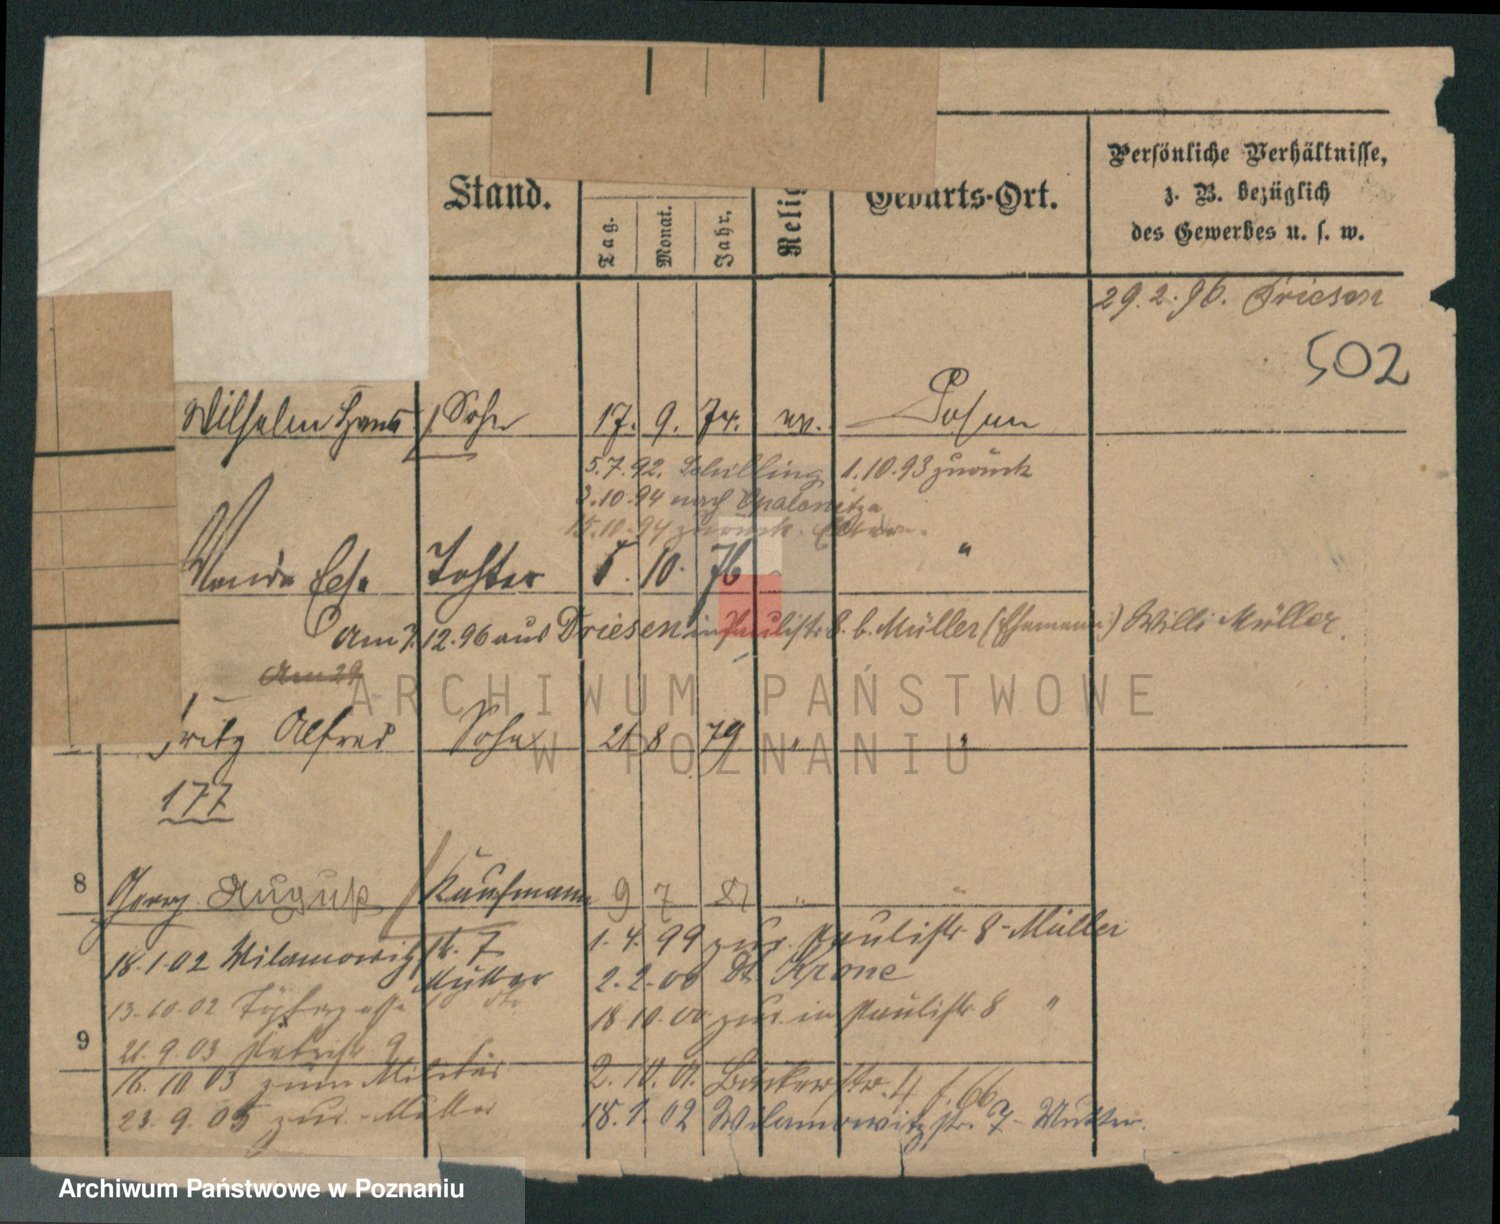 Stand.
Tag.
Monat.
Jahr,
Relig
Geburts-Ort.
Persönliche Verhältnisse,
z. B. bezüglich
des Gewerbes u. s. w.
29.2.96. Driesen
502
Wilhelm Hans Sohn 17. 9. 74. ev. Posen
5.7.92. Schilling 1.10.93 zurück
3.10.94 nach Opalenitza
15.10.94 zurück. Eltern.
Tochter 5. 10. 76 "
Am 7.12.96 aus Driesen in Paulistr 8. b. Müller (Ehemann) Willi Müller.
Am 29
Fritz Alfred Sohn 21 8 79 " "
177
8 Georg August Kaufmann 9 7 81 " "
1.4.99 zur. Paulistr 8 - Müller
18.1.02 Wilamowitzstr. 7
Mutter
2.2.00 Dt Krone
13.10.02 Töpfergasse dto
18.10.00 zur. in Paulistr 8 "
9
21.9.03 Petristr 9
16.10 03 zum Militär
2.10.01. Bäckerstr. 4 f. 66
23.9.05 zur. - Mutter
18.1.02 Wilamowitzstr. 7 - Mutter.
ARCHIWUM PAŃSTWOWE
W POZNANIU
Archiwum Państwowe w Poznaniu